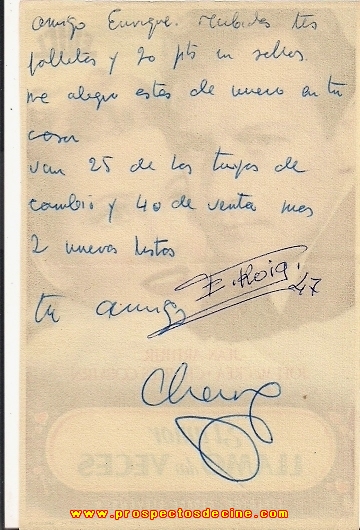 amigo Enrique. recibidos tus
folletos y 20 pts en sellos.
me alegro estes de nuevo en tu
casa
van 25 de los tuyos de
cambio y 40 de venta mas
2 nuevas listas
tu amigo
E. Roig
47
LLAMO
VECES
www.prospectosdecine.com